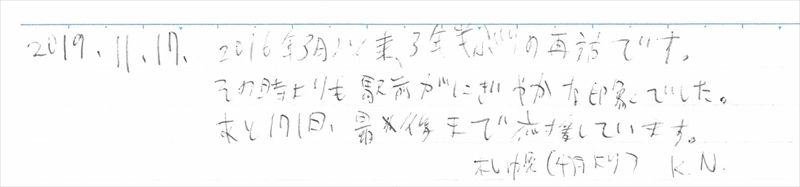 2019.11.17. 2016年3月以来、3年半ぶりの再訪です。
その時よりも駅前がにぎやかな印象でした。
あと171日、最後まで応援しています。
札幌(4月より) K.N.